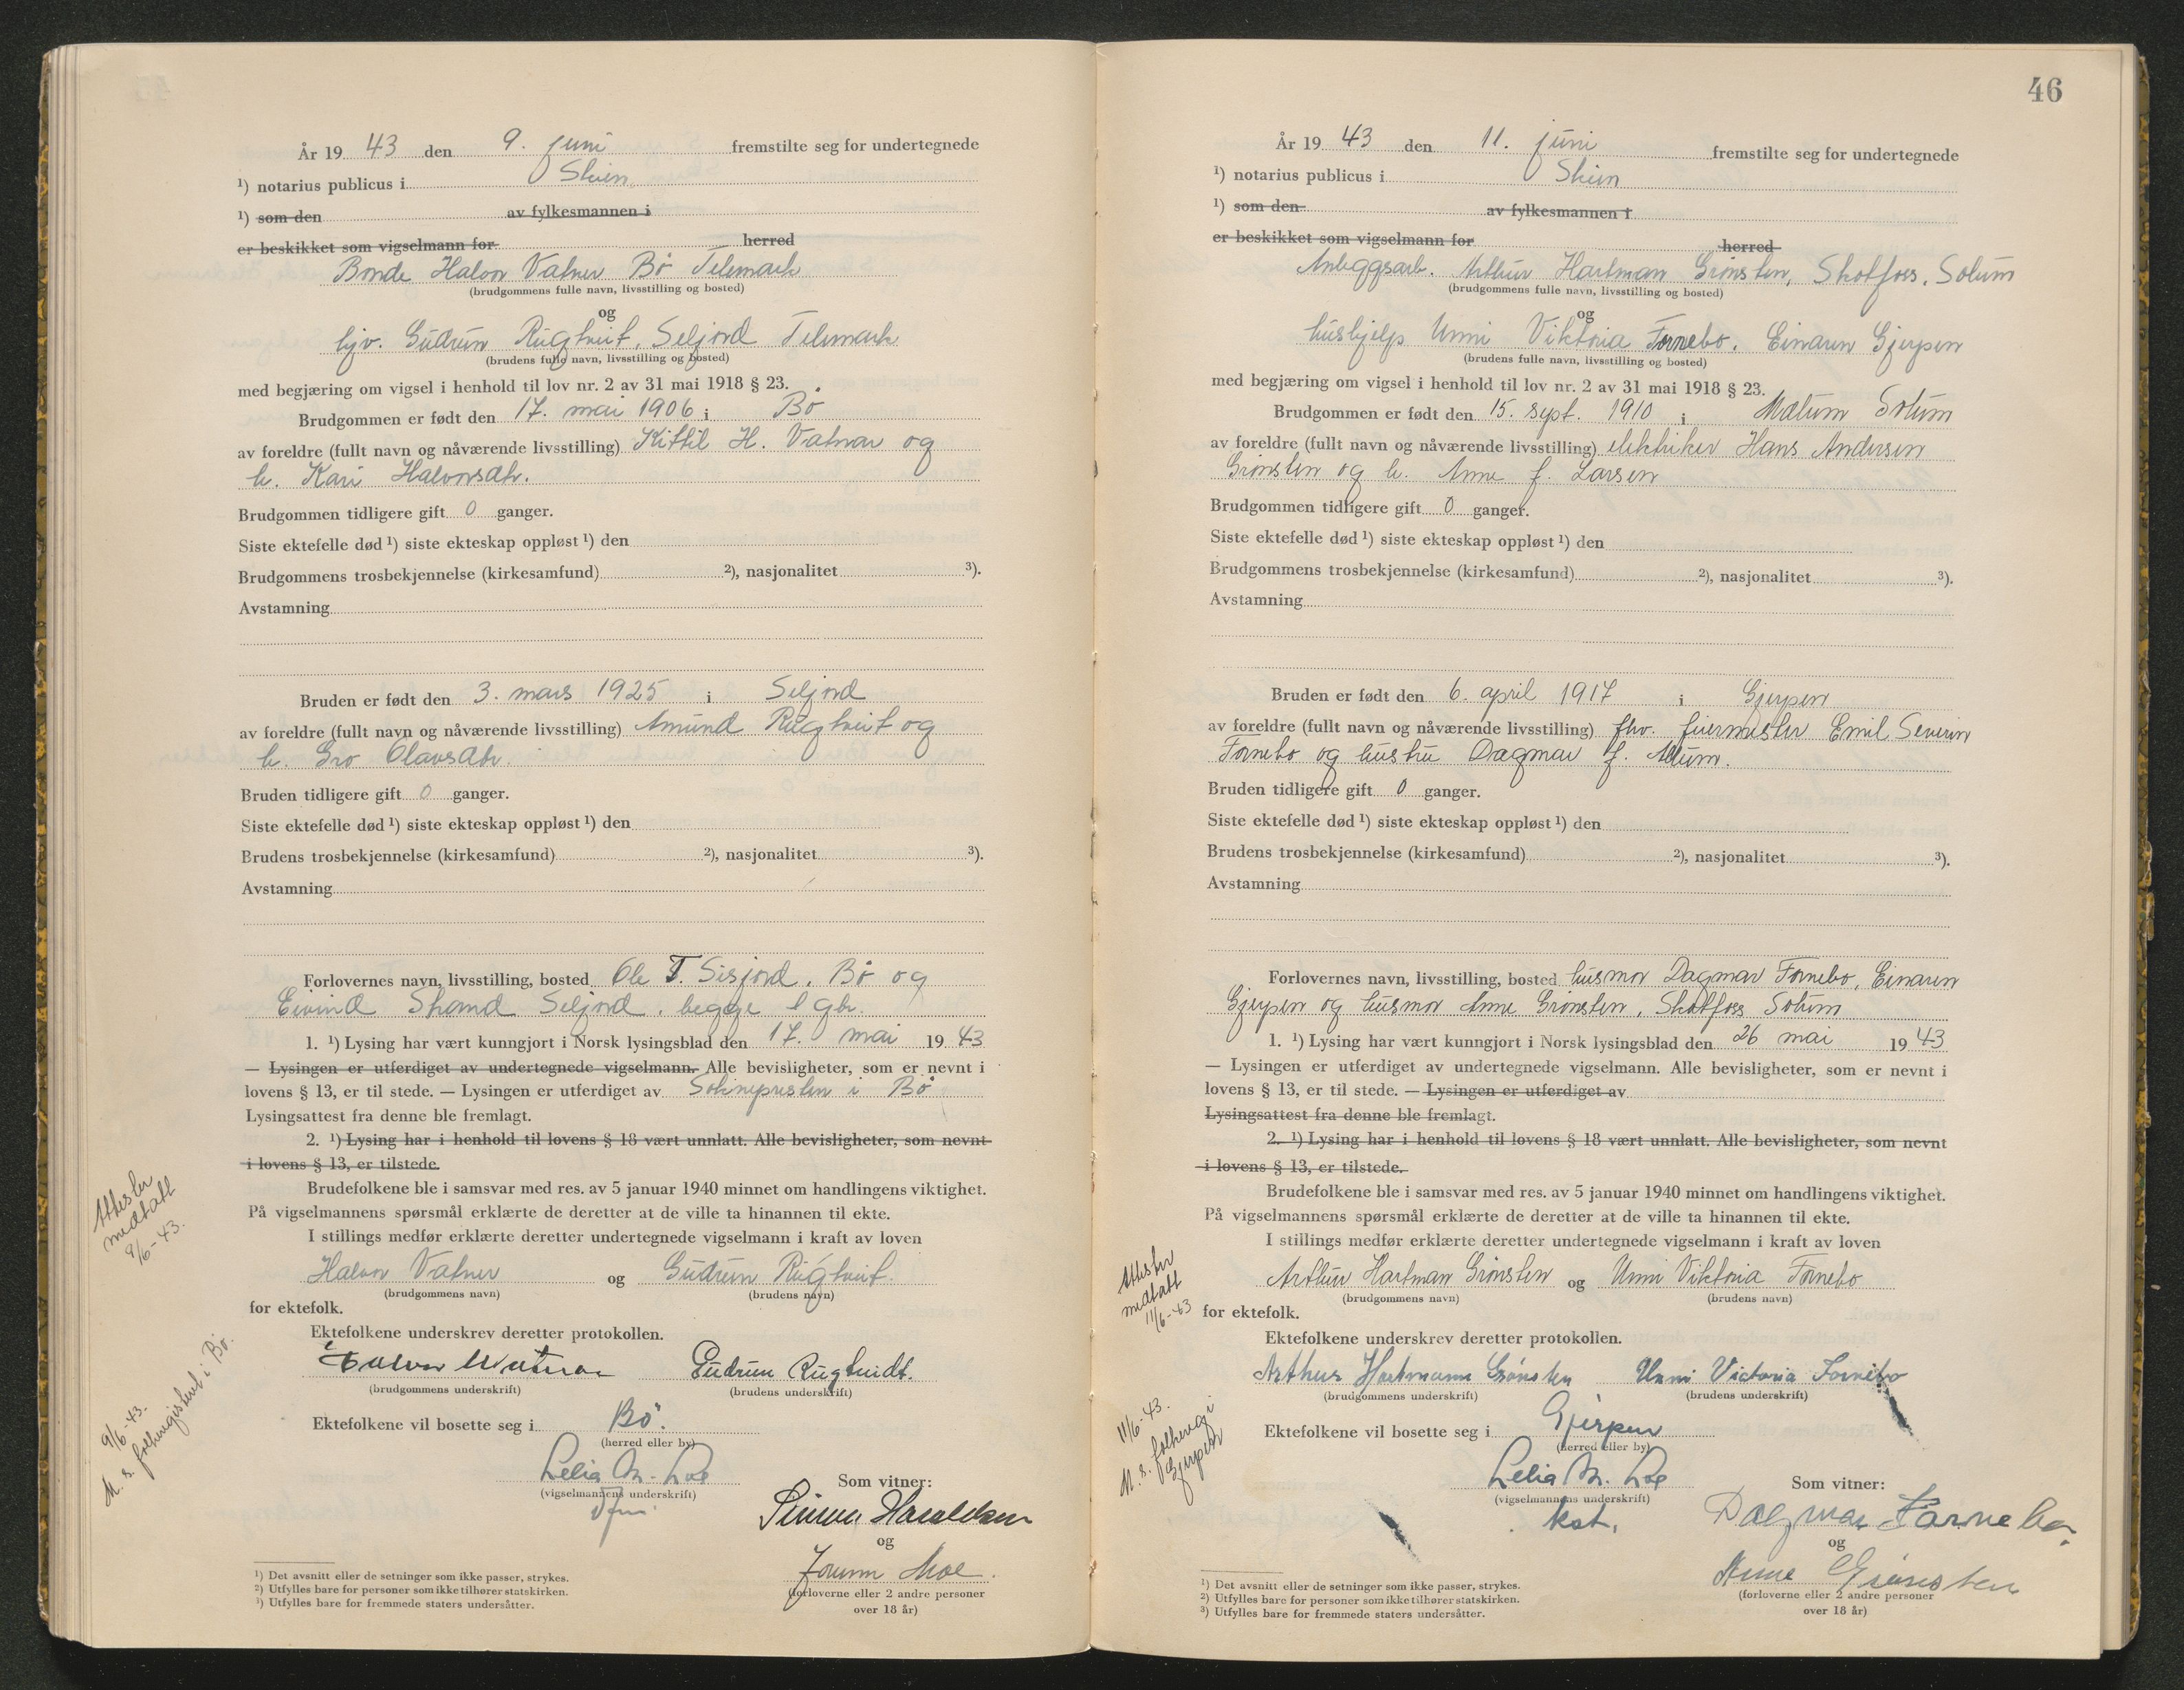 År 19 43 den 9. juni fremstilte seg for undertegnede
¹) notarius publicus i Skien
¹) som den av fylkesmannen i
er beskikket som vigselmann for herred
Bonde Halvor Vatner Bø Telemark
(brudgommens fulle navn, livsstilling og bosted)
og
hjv. Gudrun Rugtveit, Seljord Telemark
(brudens fulle navn, livsstilling og bosted)
med begjæring om vigsel i henhold til lov nr. 2 av 31 mai 1918 § 23.
Brudgommen er født den 17. mai 1906 i Bø
av foreldre (fullt navn og nåværende livsstilling) Kittil H. Vatnar og
h. Kari Halvorsdtr.
Brudgommen tidligere gift 0 ganger.
Siste ektefelle død ¹) siste ekteskap oppløst ¹) den
Brudgommens trosbekjennelse (kirkesamfund) ²), nasjonalitet ³).
Avstamning
Bruden er født den 3. mars 1925 i Seljord
av foreldre (fullt navn og nåværende livsstilling) Amund Rugtveit og
h. Gro Olavsdtr.
Bruden tidligere gift 0 ganger.
Siste ektefelle død ¹) siste ekteskap oppløst ¹) den
Brudens trosbekjennelse (kirkesamfund) ²), nasjonalitet ³).
Avstamning
Forlovernes navn, livsstilling, bosted Ole T. Sisjord, Bø og
Eivind Strand Seljord, begge gbr.
1. ¹) Lysing har vært kunngjort i Norsk lysingsblad den 17. mai 19 43
— Lysingen er utferdiget av undertegnede vigselmann. Alle bevisligheter, som er nevnt i
lovens § 13, er til stede. — Lysingen er utferdiget av Soknepresten i Bø
Lysingsattest fra denne ble fremlagt.
2. ¹) Lysing har i henhold til lovens § 18 vært unnlatt. Alle bevisligheter, som nevnt
i lovens § 13, er tilstede.
Brudefolkene ble i samsvar med res. av 5 januar 1940 minnet om handlingens viktighet.
På vigselmannens spørsmål erklærte de deretter at de ville ta hinannen til ekte.
I stillings medfør erklærte deretter undertegnede vigselmann i kraft av loven
Halvor Vatner og Gudrun Rugtveit.
(brudgommens navn) (brudens navn)
for ektefolk.
Ektefolkene underskrev deretter protokollen.
Halvor Gudrun Rugtveidt.
(brudgommens underskrift) (brudens underskrift)
Ektefolkene vil bosette seg i Bø.
(herred eller by)
Lelia M. Loe
(vigselmannens underskrift)
Som vitner:
Haraldsen
og
Jorunn Moe.
(forloverne eller 2 andre personer
over 18 år)
¹) Det avsnitt eller de setninger som ikke passer, strykes.
²) Utfylles bare for personer som ikke tilhører statskirken.
³) Utfylles bare for fremmede staters undersåtter.
Attester
mottatt
9/6-43.
9/6-43.
M. s. folkeregisteret i Bø.
46
År 19 43 den 11. juni fremstilte seg for undertegnede
¹) notarius publicus i Skien
¹) som den av fylkesmannen i
er beskikket som vigselmann for herred
Anleggsarb. Arthur Hartman Grønsten, Skotfoss, Solum
(brudgommens fulle navn, livsstilling og bosted)
og
hushjelp Unni Viktoria Fornebo, Einaren Gjerpen
(brudens fulle navn, livsstilling og bosted)
med begjæring om vigsel i henhold til lov nr. 2 av 31 mai 1918 § 23.
Brudgommen er født den 15. sept. 1910 i Mælum Solum
av foreldre (fullt navn og nåværende livsstilling) elektriker Hans Andersen
Grønsten og h. Anne f. Larsen
Brudgommen tidligere gift 0 ganger.
Siste ektefelle død ¹) siste ekteskap oppløst ¹) den
Brudgommens trosbekjennelse (kirkesamfund) ²), nasjonalitet ³).
Avstamning
Bruden er født den 6. april 1917 i Gjerpen
av foreldre (fullt navn og nåværende livsstilling) fhv. feiermester Emil Severin
Fornebo og hustru Dagmar f. Mælum.
Bruden tidligere gift 0 ganger.
Siste ektefelle død ¹) siste ekteskap oppløst ¹) den
Brudens trosbekjennelse (kirkesamfund) ²), nasjonalitet ³).
Avstamning
Forlovernes navn, livsstilling, bosted husmor Dagmar Fornebo, Einaren
Gjerpen og husmor Anne Grønsten, Skotfoss Solum
1. ¹) Lysing har vært kunngjort i Norsk lysingsblad den 26 mai 19 43
— Lysingen er utferdiget av undertegnede vigselmann. Alle bevisligheter, som er nevnt i
lovens § 13, er til stede. — Lysingen er utferdiget av
Lysingsattest fra denne ble fremlagt.
2. ¹) Lysing har i henhold til lovens § 18 vært unnlatt. Alle bevisligheter, som nevnt
i lovens § 13, er tilstede.
Brudefolkene ble i samsvar med res. av 5 januar 1940 minnet om handlingens viktighet.
På vigselmannens spørsmål erklærte de deretter at de ville ta hinannen til ekte.
I stillings medfør erklærte deretter undertegnede vigselmann i kraft av loven
Arthur Hartman Grønsten og Unni Viktoria Fornebo
(brudgommens navn) (brudens navn)
for ektefolk.
Ektefolkene underskrev deretter protokollen.
Arthur Hartmann Grønsten Unni Victoria Fornebo
(brudgommens underskrift) (brudens underskrift)
Ektefolkene vil bosette seg i Gjerpen
(herred eller by)
Lelia M. Loe
(vigselmannens underskrift)
kst.
Som vitner:
Dagmar Fornebo.
og
Anne Grønsten
(forloverne eller 2 andre personer
over 18 år)
¹) Det avsnitt eller de setninger som ikke passer, strykes.
²) Utfylles bare for personer som ikke tilhører statskirken.
³) Utfylles bare for fremmede staters undersåtter.
Attester
mottatt
11/6-43
11/6-43.
M. s. folkereg i
Gjerpen